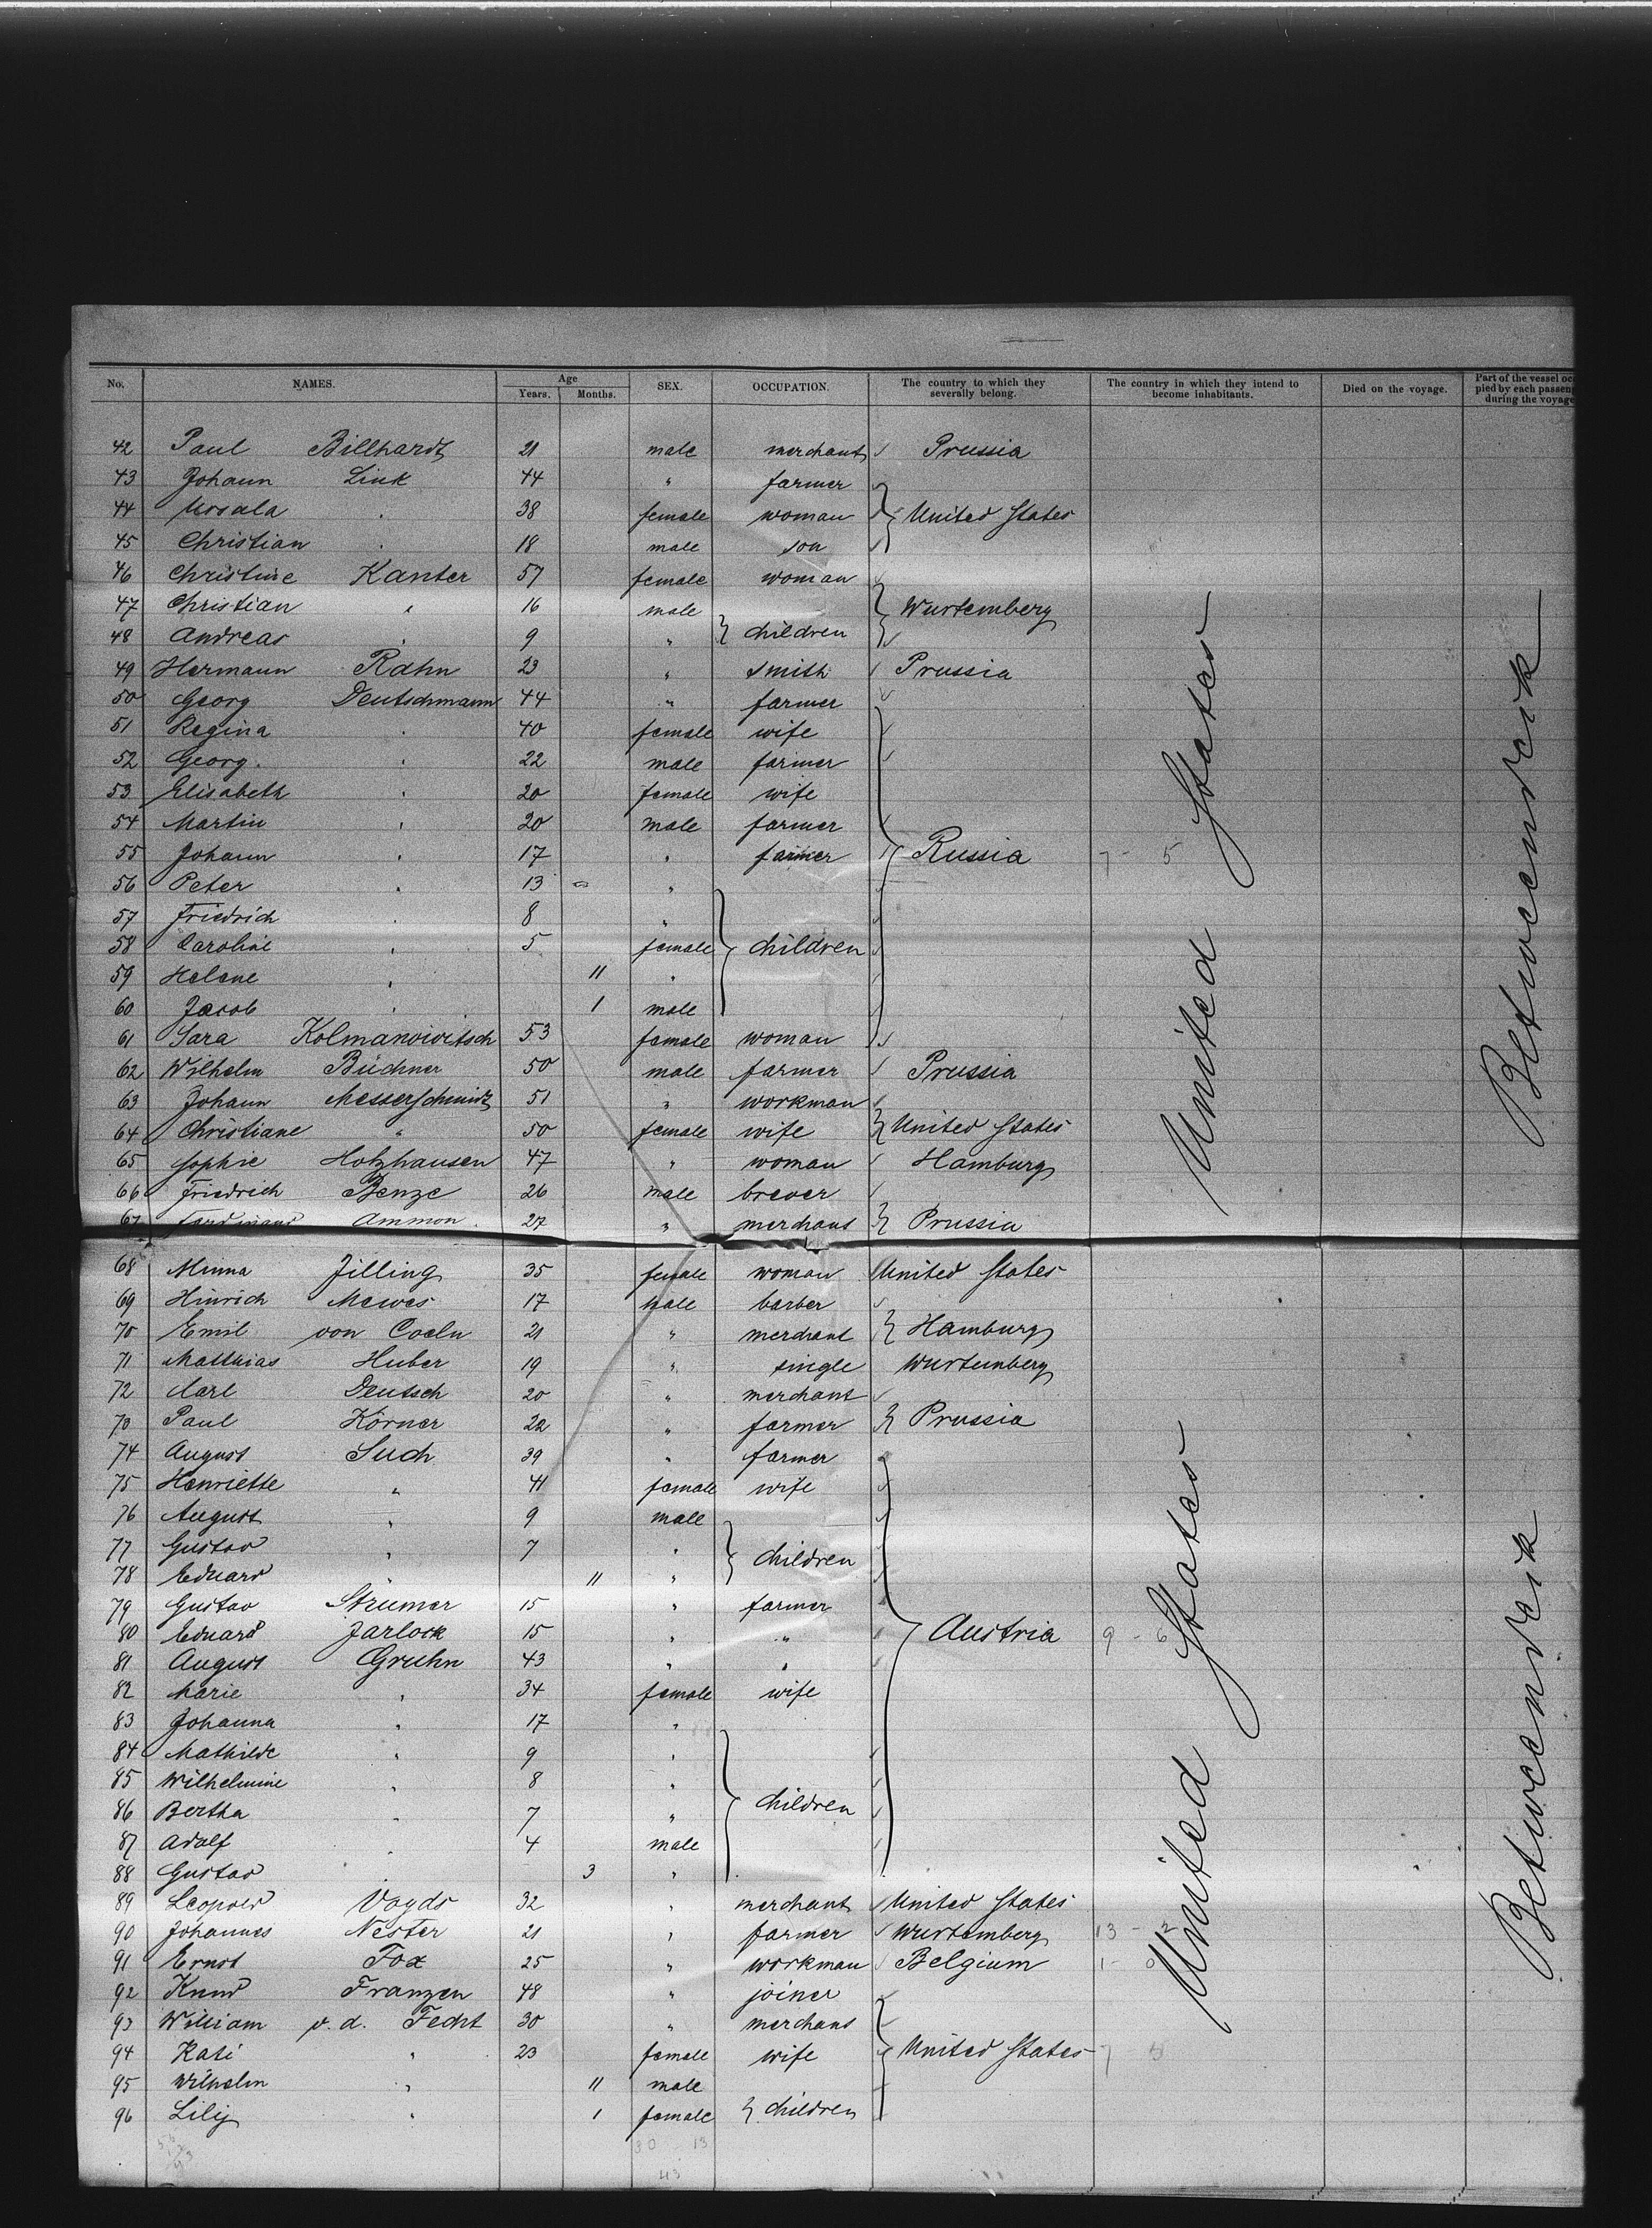 No. NAMES. Age Years. Months. SEX. OCCUPATION. The country to which they severally belong. The country in which they intend to become inhabitants. Died on the voyage. Part of the vessel occ pied by each passen during the voyage
42 Paul Billhardt 21 male merchant Prussia
43 Johann Link 44 " farmer
44 Ursula " 38 female woman United States
45 Christian " 18 male son
46 Christine Kanter 57 female woman
47 Christian " 16 male Wurtemberg
48 Andreas " 9 " children
49 Hermann Rahn 23 " smith Prussia
50 Georg Deutschmann 44 " farmer
51 Regina " 40 female wife
52 Georg " 22 male farmer
53 Elisabeth " 20 female wife
54 Martin " 20 male farmer
55 Johann " 17 " farmer Russia 7 - 5
56 Peter " 13 "
57 Friedrich " 8 "
58 Caroline " 5 female children
59 Helene " 11 "
60 Jacob " 1 male
61 Sara Kolmanowitsch 53 female woman
62 Wilhelm Büchner 50 male farmer Prussia
63 Johann Messerschmidt 51 " workman
64 Christiane " 50 female wife United States
65 Sophie Holzhausen 47 " woman Hamburg
66 Friedrich Benze 26 male brever
67 Ferdinand Ammon 27 " merchant Prussia
United States
Betweendeck
68 Minna Jilling 35 female woman United States
69 Hinrich Mewes 17 male barber
70 Emil von Coeln 21 " merchant Hamburg
71 Matthias Huber 19 " single Wurtemberg
72 Carl Deutsch 20 " merchant
73 Paul Körner 22 " farmer Prussia
74 August Such 39 " farmer
75 Henriette " 41 female wife
76 August " 9 male
77 Gustav " 7 " children
78 Eduard " 11 "
79 Gustav Strumer 15 " farmer
80 Eduard Jarlock 15 " " Austria 9 - 6
81 August Gruhn 43 " "
82 Marie " 34 female wife
83 Johanna " 17 "
84 Mathilde " 9 "
85 Wilhelmine " 8 "
86 Bertha " 7 " children
87 Adolf " 4 male
88 Gustav " 3 "
89 Leopold Voyds 32 " merchant United States
90 Johannes Nester 21 " farmer Wurtemberg 13 - 2
91 Ernst Fox 25 " workman Belgium 1 - 0
92 Knud Franzen 48 " joiner
93 William v. d. Fecht 30 " merchant
94 Kati " 23 female wife United States 7
95 Wilhelm " 11 male
96 Lilij " 1 female children
United States
Betweendeck
30 13
43